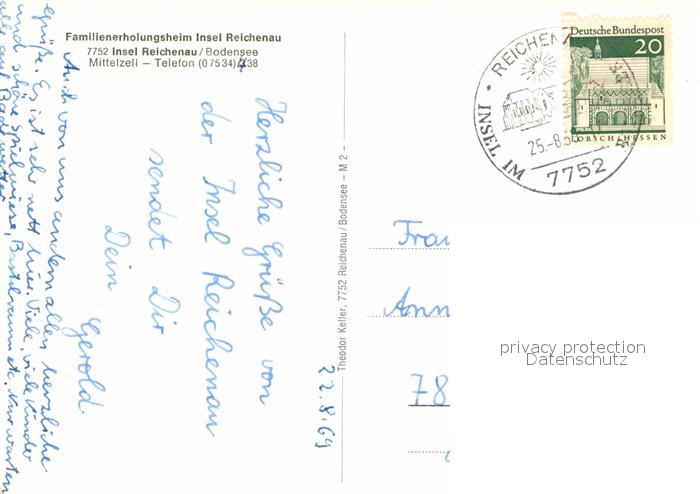 Familienerholungsheim Insel Reichenau
7752 Insel Reichenau/Bodensee
Mittelzell — Telefon (07534) 438
Herzliche Grüße von
der Insel Reichenau
sendet Dir
Dein
Gerold.
22.8.69
Auch von uns andern allen herzliche
Grüße. Es ist sehr nett hier. Viele, viele Kinder
und schöne Spielwiese, Bastelraum etc. Nur warten
alle auf Badewetter
Theodor Keller, 7752 Reichenau/Bodensee – M 2 –
Deutsche Bundespost
20
LORSCH/HESSEN
INSEL IM
25.-8.
7752
Frau
Ann
78
privacy protection
Datenschutz